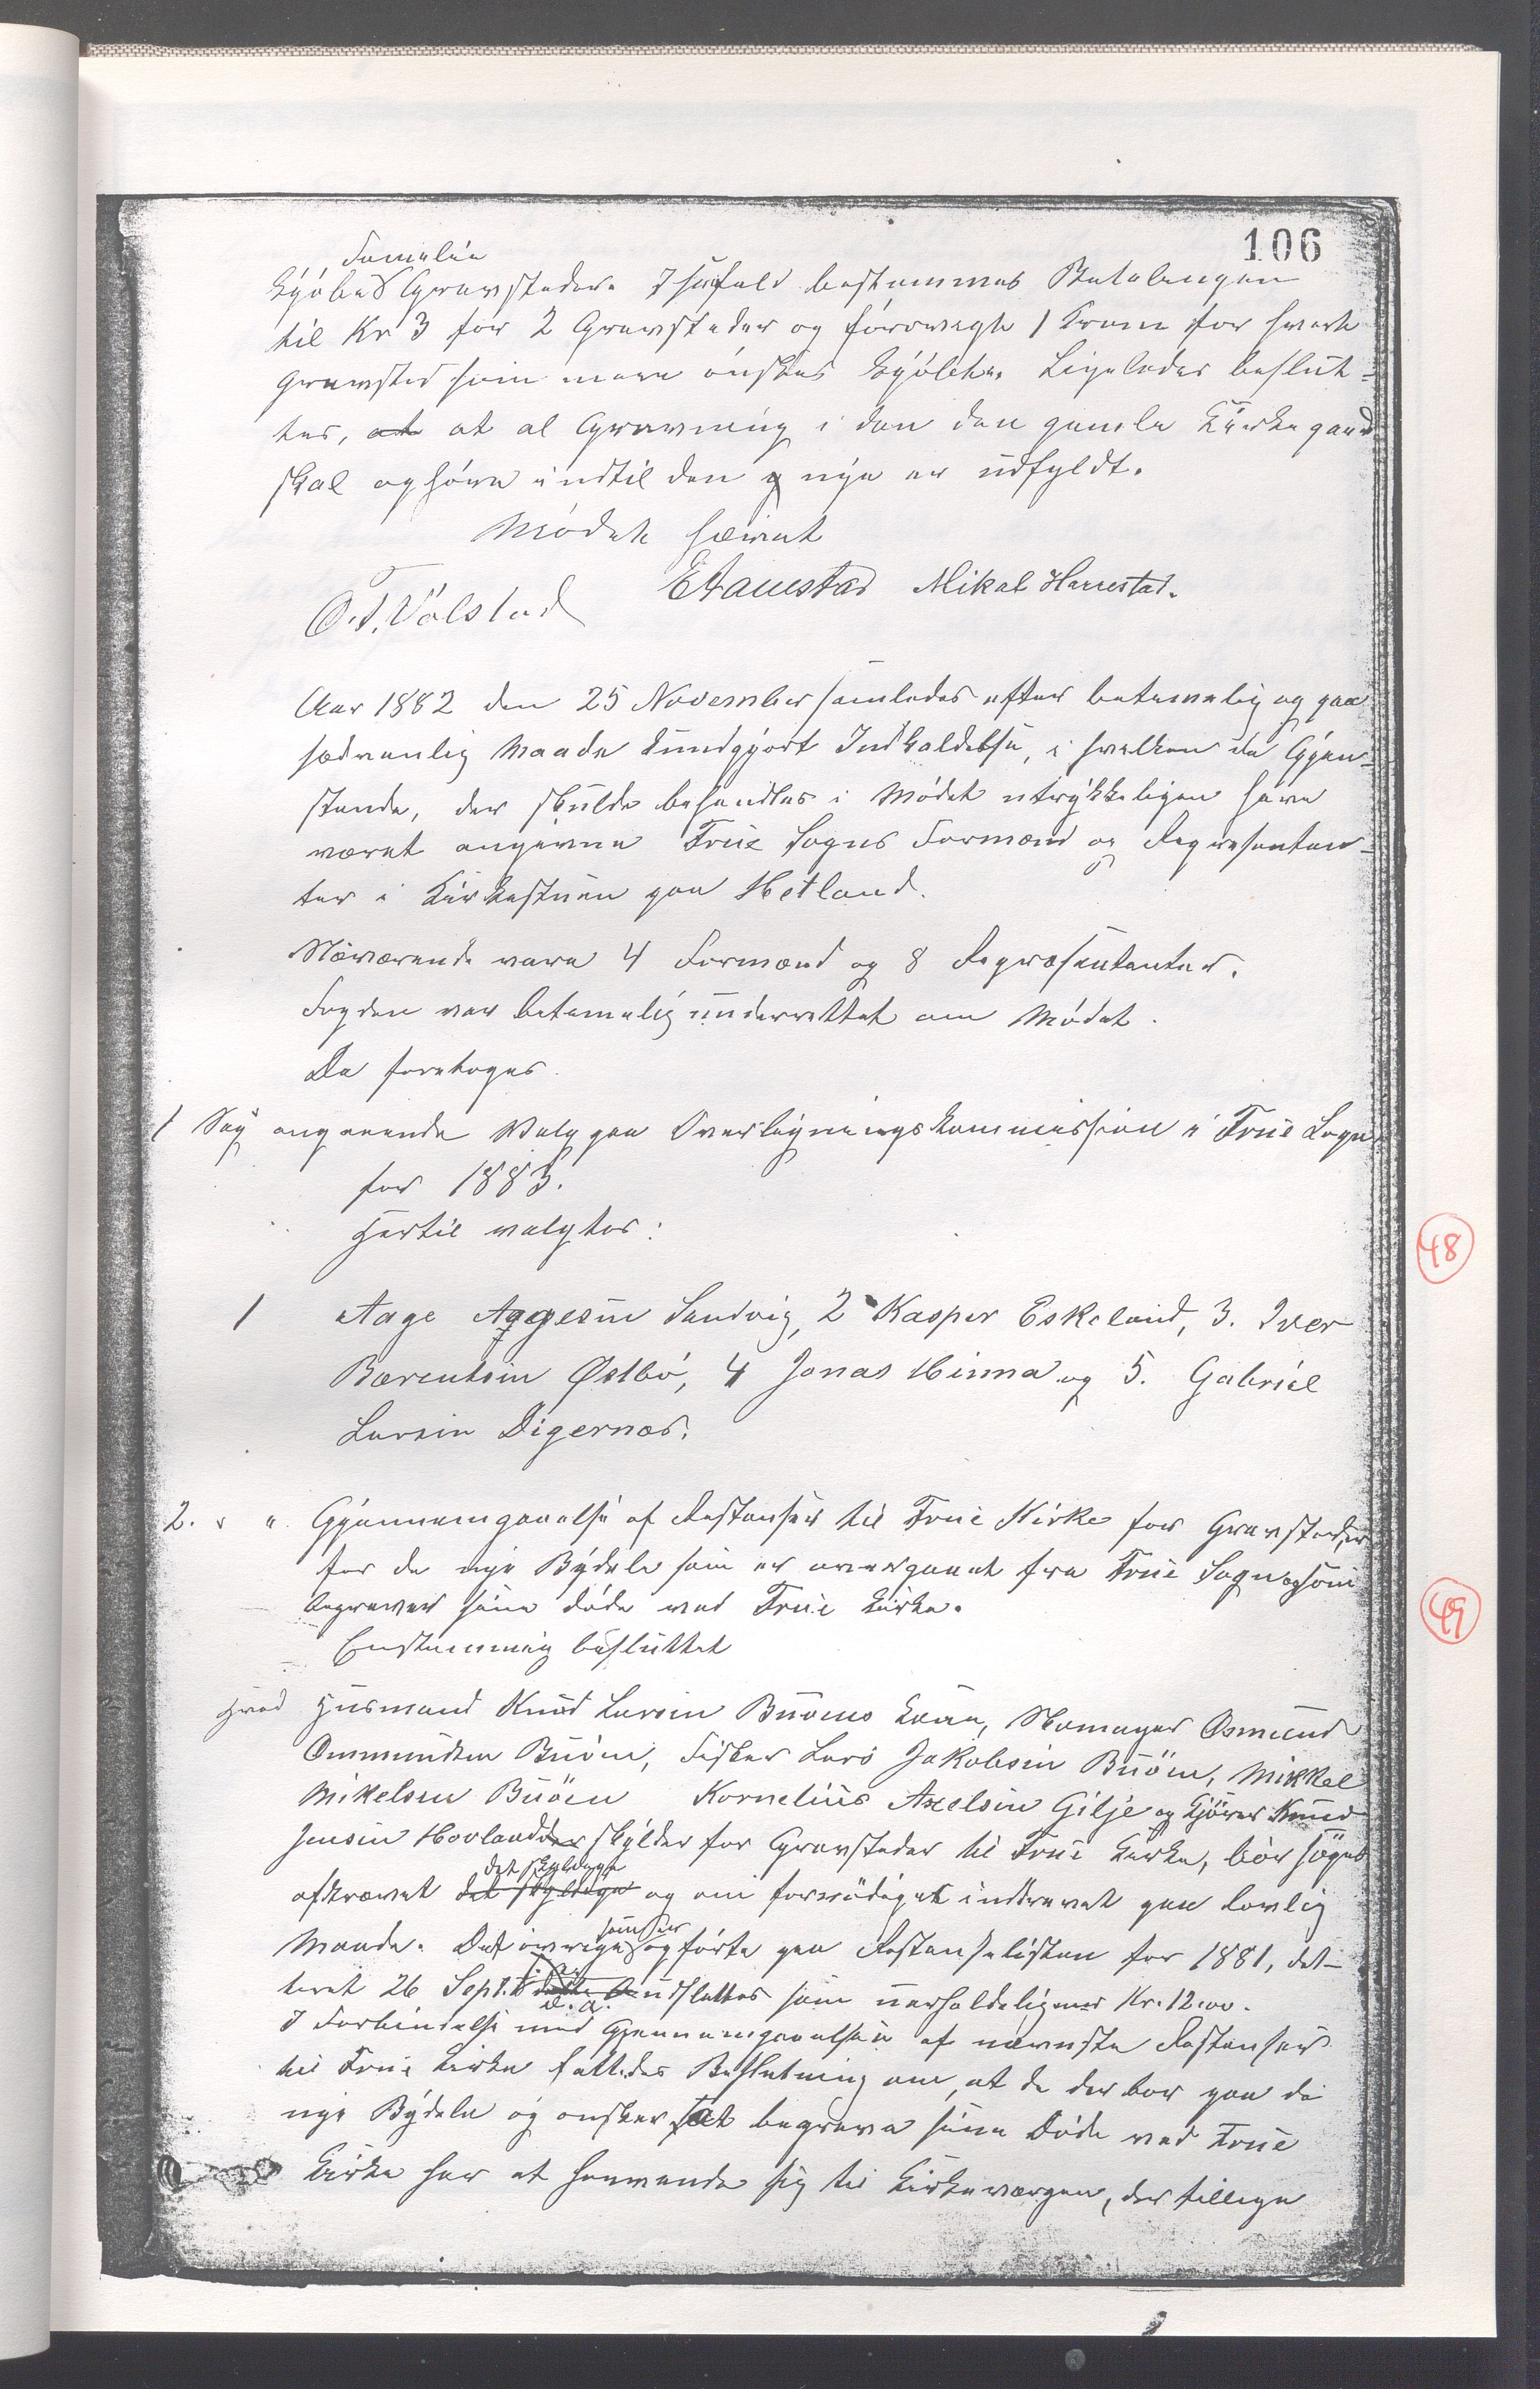 106
Familie
Kjøbes Gravsteder. I saafald bestemmes Betalingen
til Kr 3 for 2 Gravsteder og forøvrigt 1 Krone for hvert
Gravsted som mere ønskes kjøbt. Ligeledes beslut-
tes, at at al Gravning i den den gamle Kirkegaard
skal ophøre indtil den g nye er udfyldt.
Mødet hævet
O. T. Volstad Mikal Harrestad.
Aar 1882 den 25 November samledes efter betimelig og paa
sædvanlig Maade kundgjort Indkaldelse, i hvilken de Gjen-
stande, der skulde behandles i Mødet utrykkeligen have
været angivne Frue Sogns Formænd og Repræsentan-
ter i Kirkestuen paa Hetland.
Nærværende vare 4 Formænd og 8 Repræsentanter.
Fogden var betimelig underrettet om Mødet.
Da foretoges.
1 Sag angaaende Valg paa Overligningskommission i Frue Sogn
for 1883.
Hertil valgtes:
1 Aage Aagesen Sandvig, 2 Kasper Eskeland, 3. Iver
Barentsen Østbø, 4 Jonas Hinna og 5. Gabriel
Larsen Digernæs.
2. " " Gjennemgaaelse af Restanser til Frue Kirke for Gravsteder
for de nye Bydele som er overgaaet fra Frue Sogn og som
begraver sine døde ved Frue Kirke.
Enstemmig besluttet
Hvad Husmand Knud Larsen Buøens Kone, Osmund
Ommundsen Buøen, Fisker Lars Jakobsen Buøen, Mikkel
Mikelsen Buøen Kornelius Axelsen Gilje og Kjører Knud
Jensen Hovland der skylder for Gravsteder til Frue Kirke, bør søges
det skyldige
afkrævet det skyldige og om fornødiget inddrevet paa lovlig
som er
Maade. Det øvrige opførte paa Restanselisten for 1881, dat-
teret 26 Sept. d. a. udslettes som uerholdeligt Kr. 12.00.
I Forbindelse med Gjennemgaaelsen af nævnte Restanser
til Frue Kirke fattedes Beslutning om, at de der bor paa de
nye Bydele og ønsker at begrave sine Døde ved Frue
Kirke har at henvende sig til Kirkeværgen, der tillige
48
49